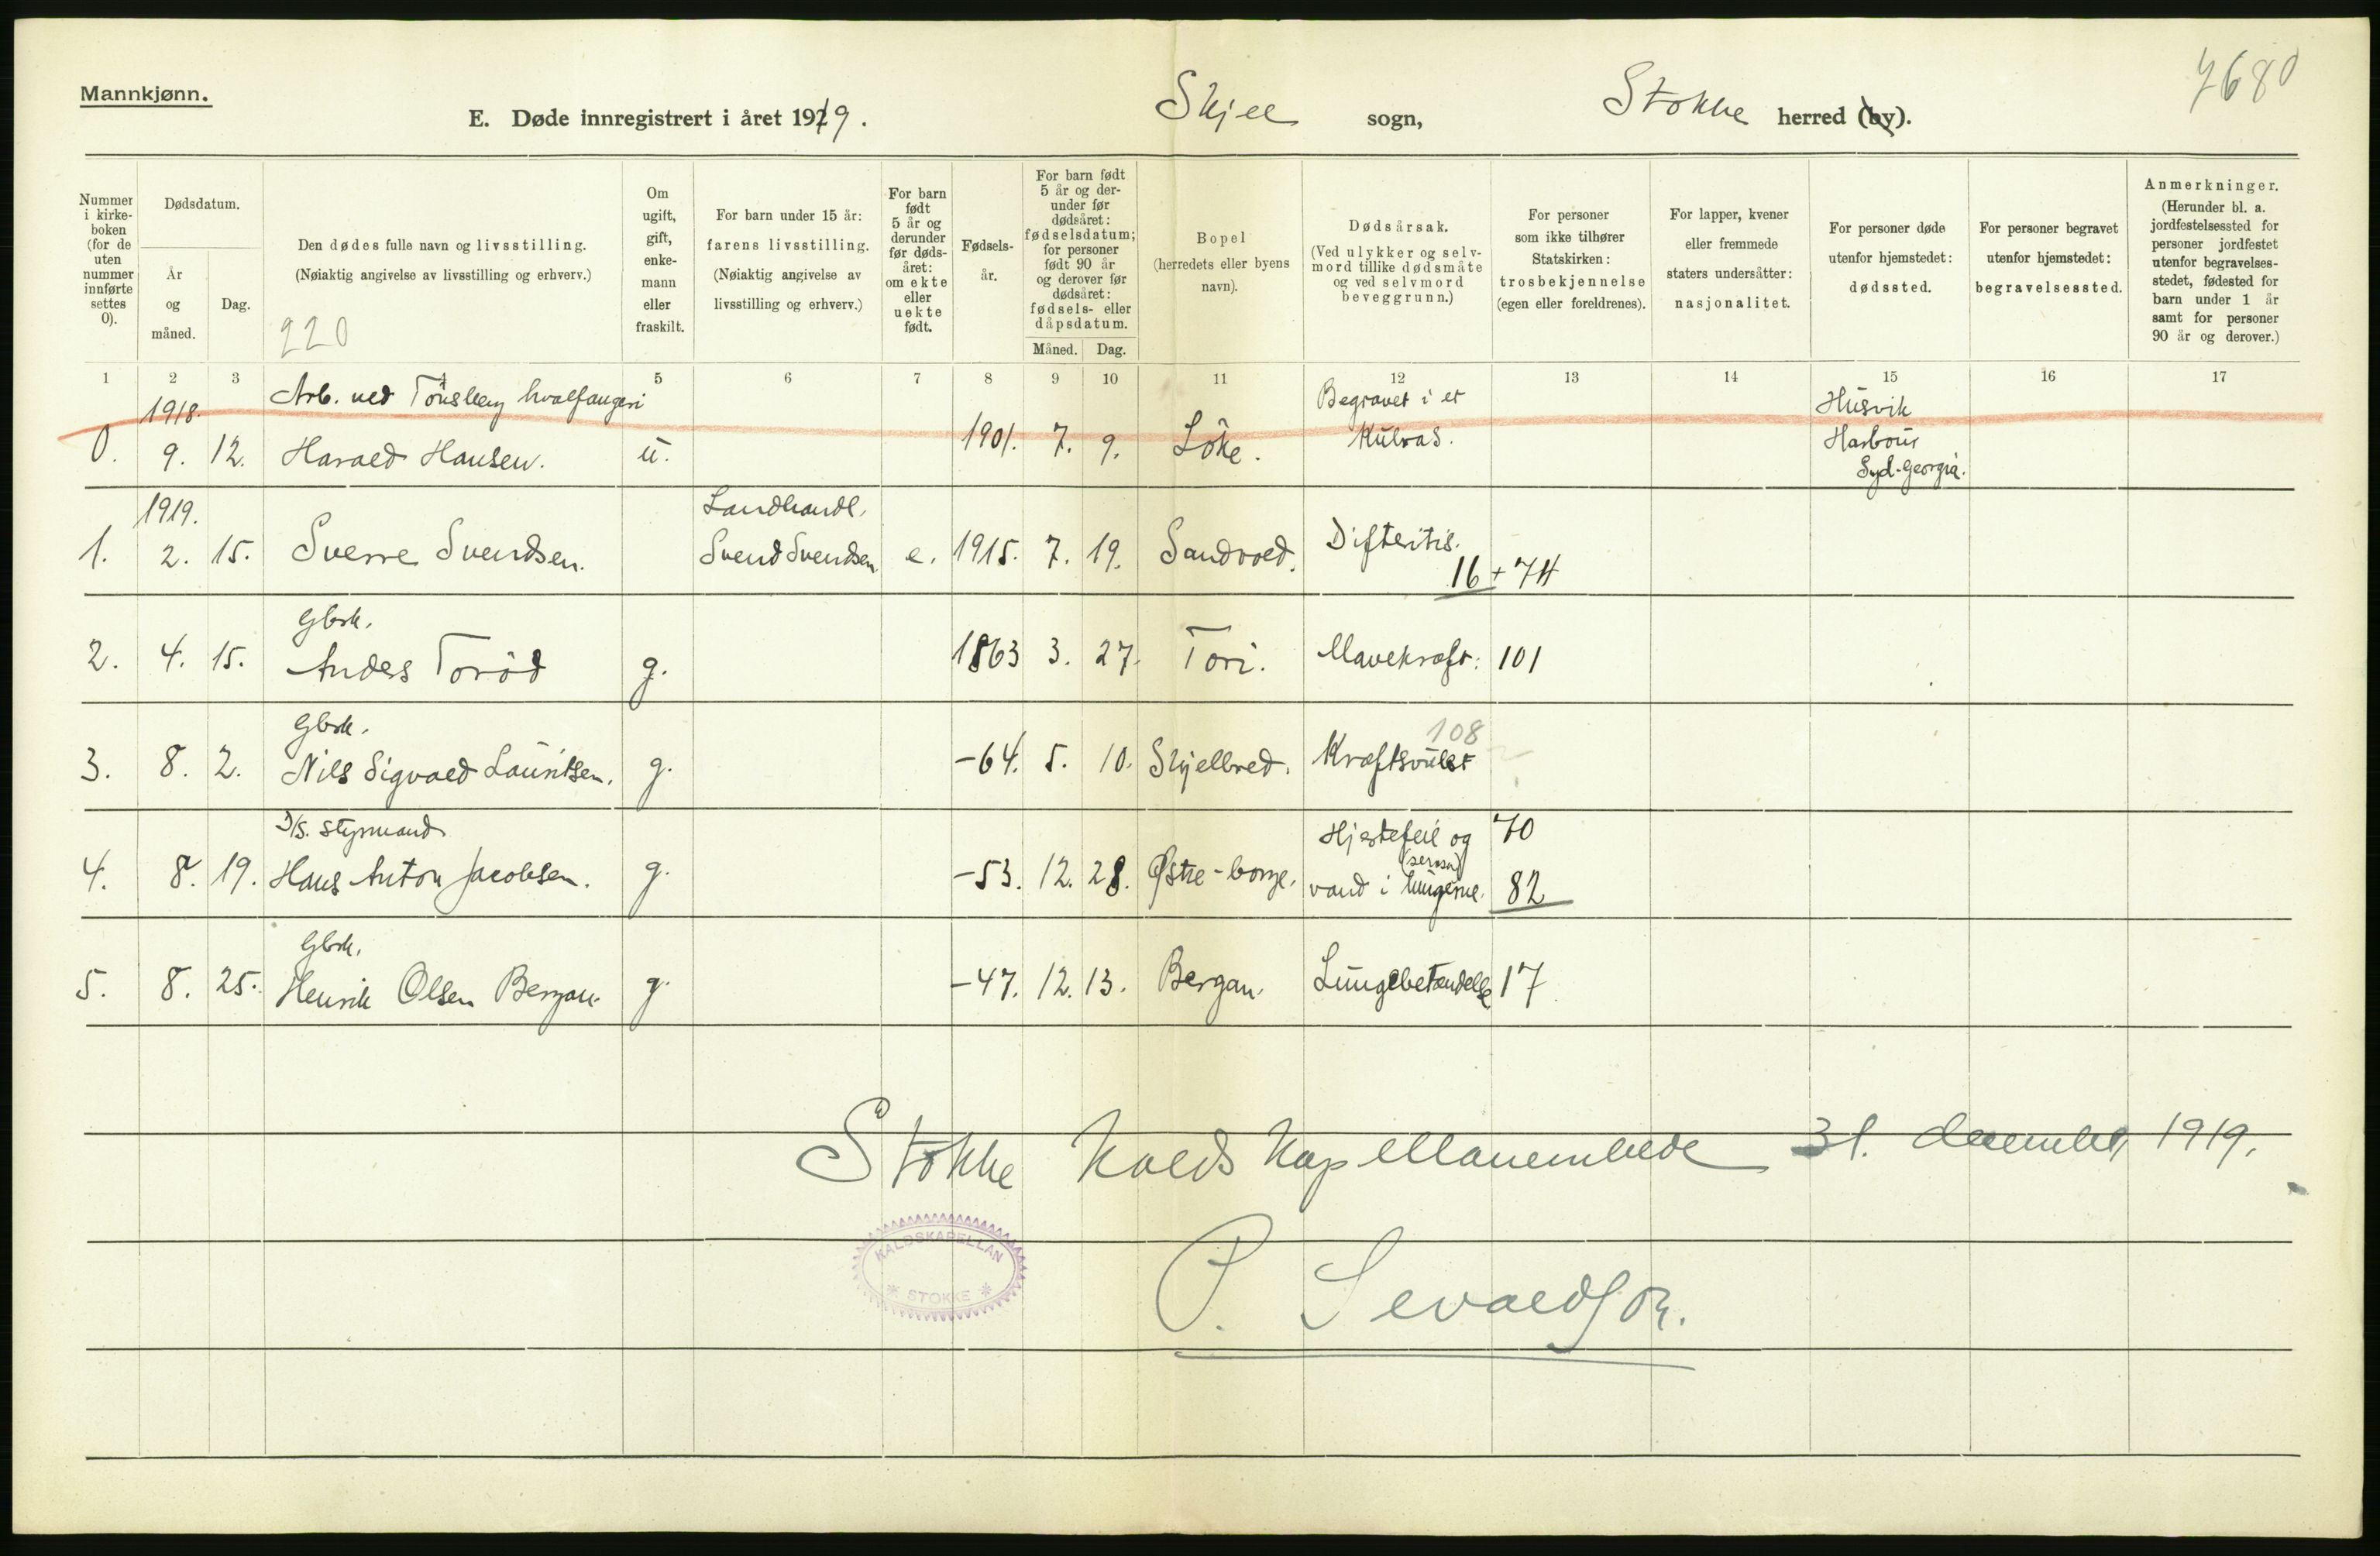 Mannkjønn.
E. Døde innregistrert i året 1919.
Skjee sogn,
Stokke herred (by).
7680
Nummer i kirke-boken (for de uten nummer innførte settes 0).
Dødsdatum.
År og måned.
Dag.
Den dødes fulle navn og livsstilling.
(Nøiaktig angivelse av livsstilling og erhverv.)
220
Om ugift, gift, enke-mann eller fraskilt.
For barn under 15 år:
farens livsstilling.
(Nøiaktig angivelse av livsstilling og erhverv.)
For barn født 5 år og derunder før døds-året: om ekte eller uekte født.
Fødsels-år.
For barn født 5 år og der-under før dødsåret: fødselsdatum; for personer født 90 år og derover før dødsåret: fødsels- eller dåpsdatum.
Måned. Dag.
Bopel
(herredets eller byens navn).
Dødsårsak.
(Ved ulykker og selv-mord tillike dødsmåte og ved selvmord beveggrunn.)
For personer som ikke tilhører Statskirken: trosbekjennelse (egen eller foreldrenes).
For lapper, kvener eller fremmede staters undersåtter: nasjonalitet.
For personer døde utenfor hjemstedet: dødssted.
For personer begravet utenfor hjemstedet: begravelsessted.
Anmerkninger.
(Herunder bl. a. jordfestelsessted for personer jordfestet utenfor begravelses-stedet, fødested for barn under 1 år samt for personer 90 år og derover.)
1 2 3 4 5 6 7 8 9 10 11 12 13 14 15 16 17
1918. Arb. ved Tønsberg hvalfangeri Begravet i et Husvik
0. 9. 12. Harald Hansen. u. 1901. 7. 9. Løke. Kulras. Harbour
Syd-Georgia.
1919. Landhandl.
1. 2. 15. Sverre Svendsen. Svend Svendsen e. 1915. 7. 19. Sandvoed. Difteritis.
16 + 74
Gbrk.
2. 4. 15. Anders Torød g. 1863 3. 27. Tori. Mavekræft. 101
Gbrk. 108
3. 8. 2. Nils Sigvald Lauritsen. g. -64. 5. 10. Skjelbred. Kræftsvulst
D/S. styrmand Hjertefeil og 70
(serosa)
4. 8. 19. Hans Anton Jacobsen. g. -53. 12. 28. Østre-borge. vand i lungerne. 82
Gbrk.
5. 8. 25. Henrik Olsen Bergan. g. -47. 12. 13. Bergan. Lungebetændelse 17
Stokke Kaldskapellanembede 31. december 1919.
KALDSKAPELLAN
* STOKKE *
P. Sevaldson.